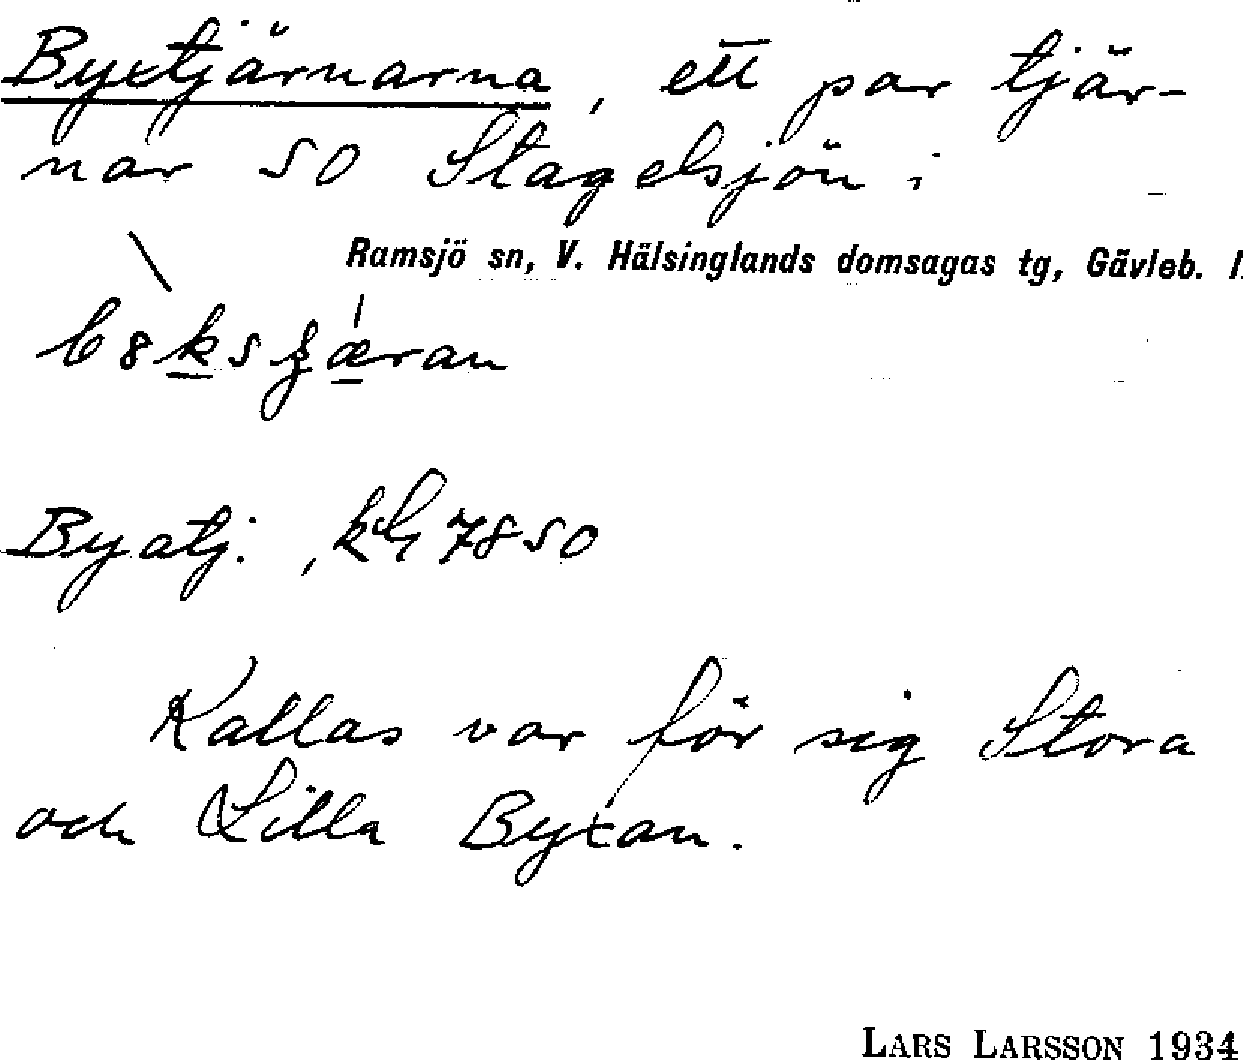 Byxtjärnarna, ett par tjär-
nar SO Stagelsjön i
Ramsjö sn, V. Hälsinglands domsagas tg, Gävleb. l.
Byatj. , kG 7850
Kallas var för sig Stora
och Lilla Byxan.
LARS LARSSON 1934